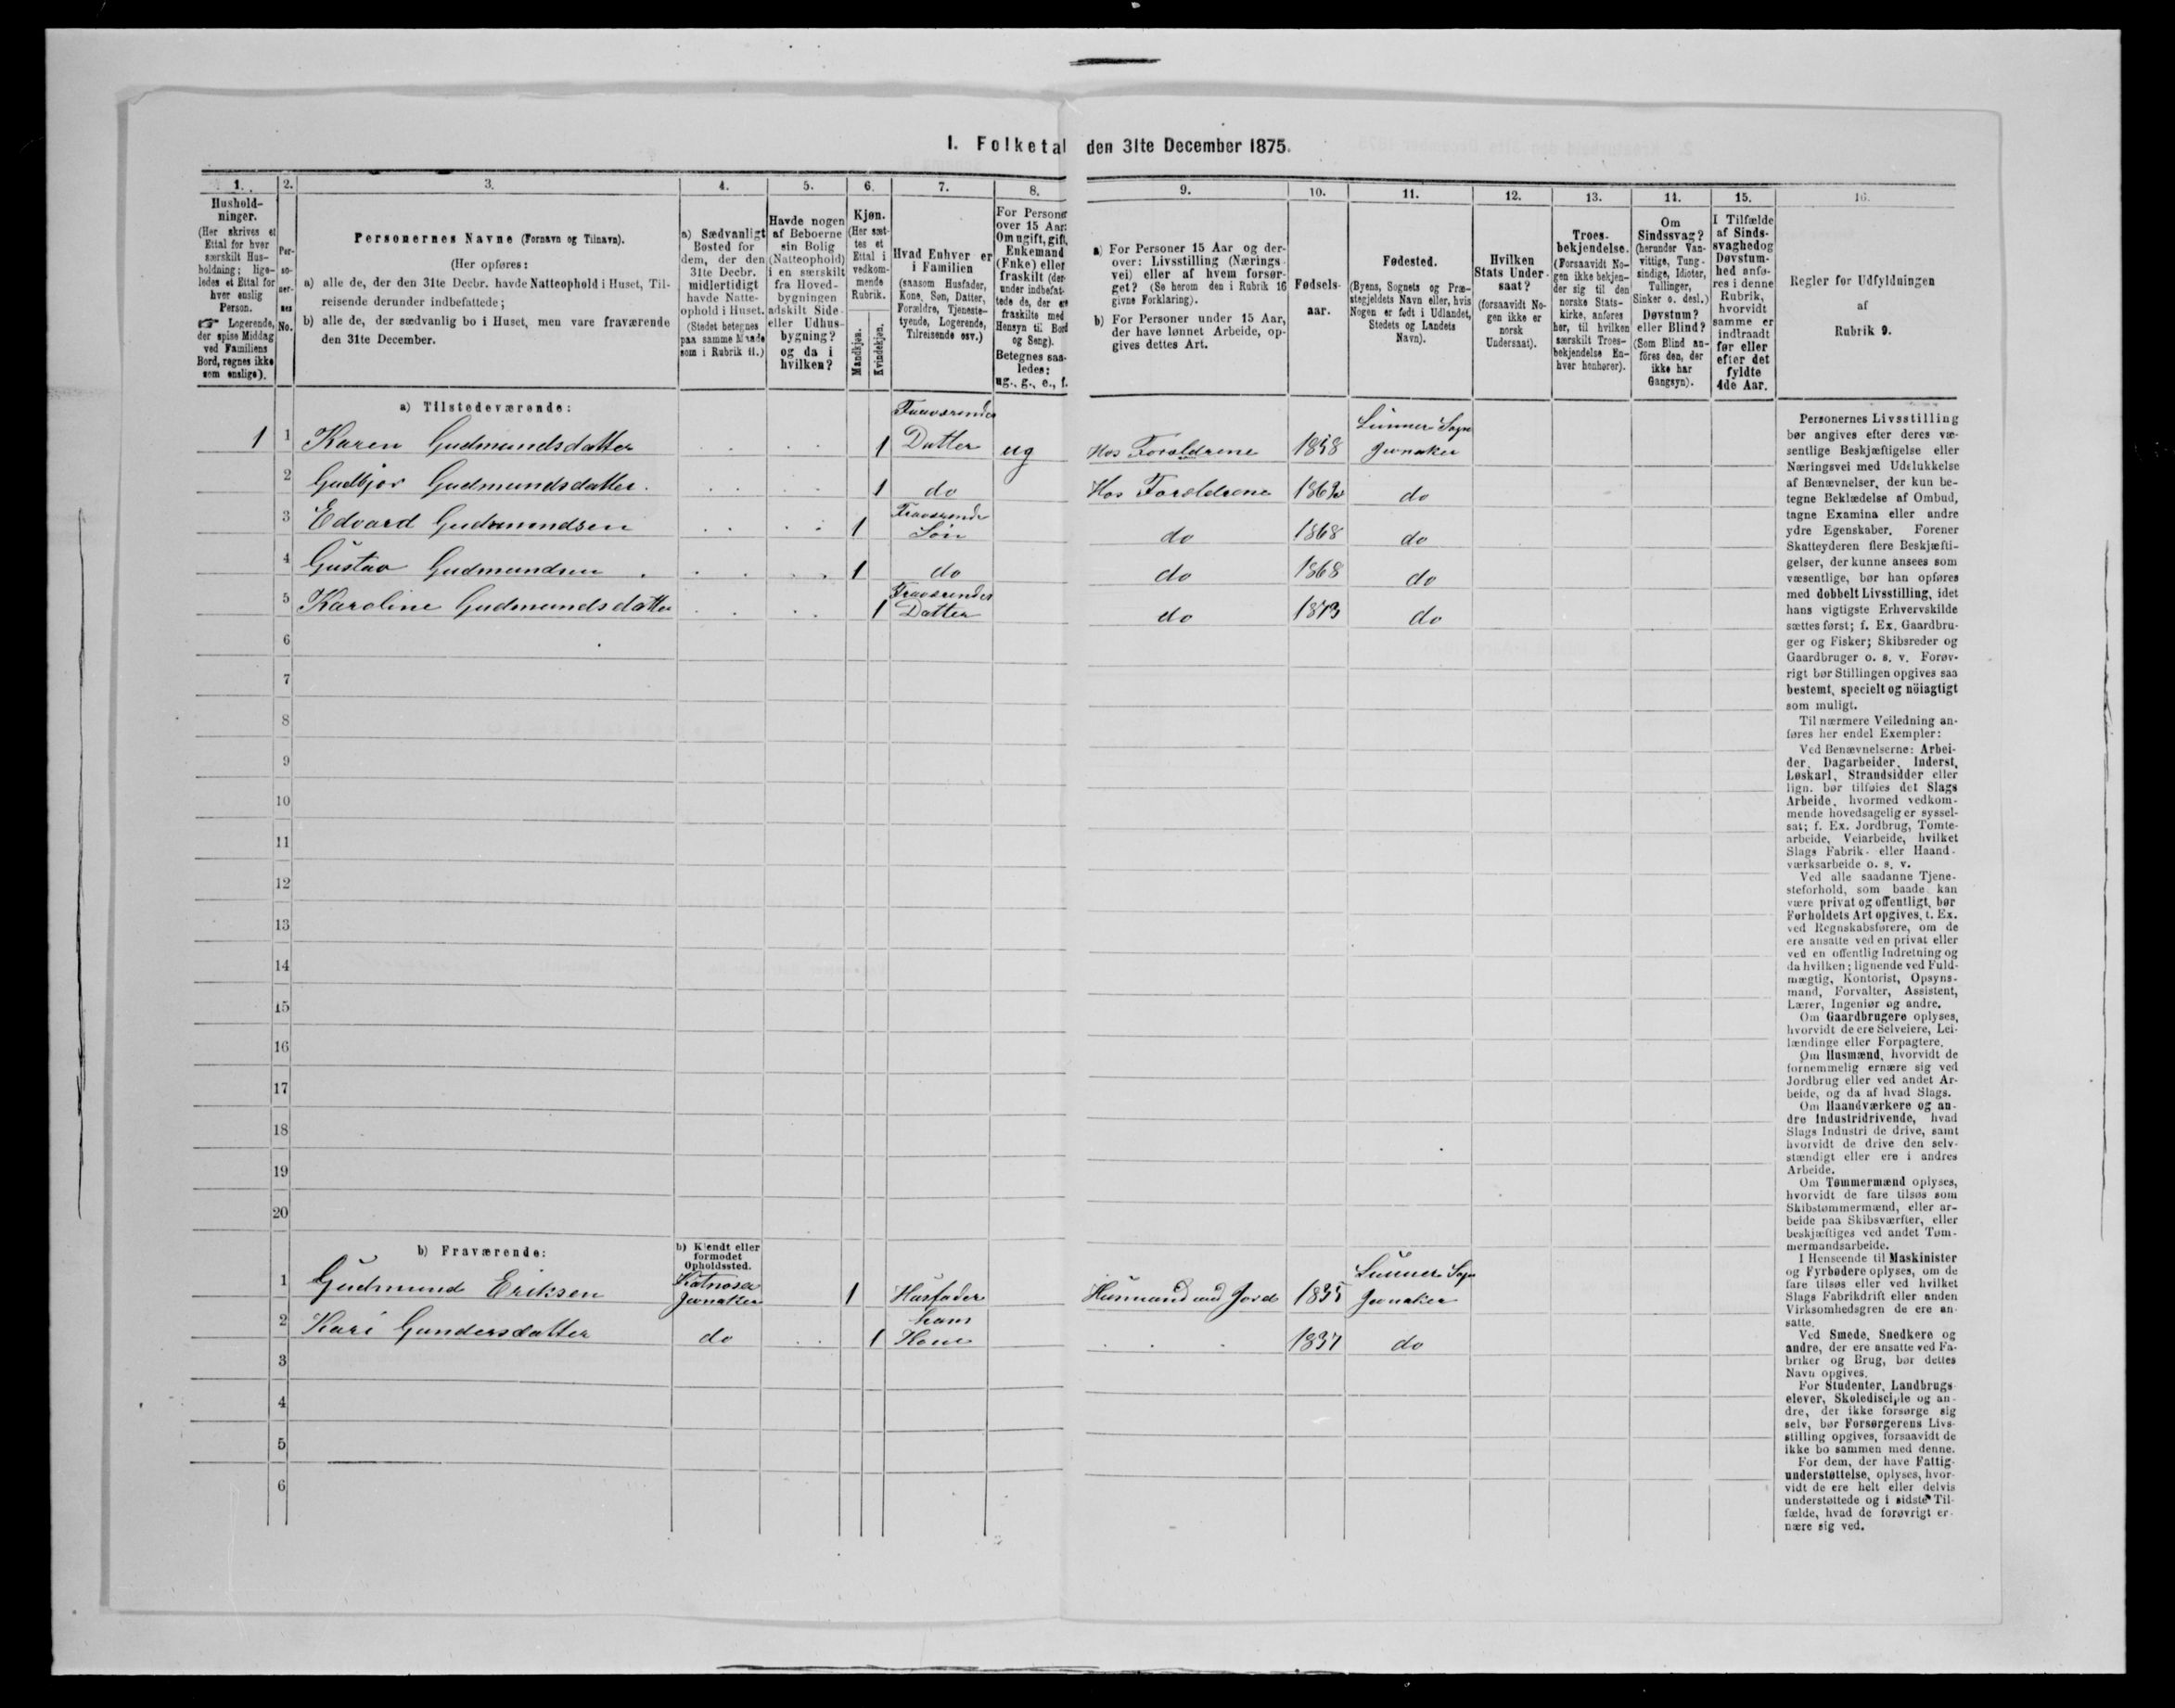 I. Folketal den 31te December 1875.
1. 2. 3. 4. 5. 6. 7. 8. 9. 10. 11. 12. 13. 14. 15. 16.
Hushold-
ninger.
(Her skrives et
Ettal for hver
særskilt Hus-
holdning; lige-
ledes et Ettal for
hver enslig
Person.
☞ Logerende,
der spise Middag
ved Familiens
Bord, regnes ikke
som enslige).
Per-
so-
ner-
nes
No.
Personernes Navne (Fornavn og Tilnavn).
(Her opføres:
a) alle de, der den 31te Decbr. havde Natteophold i Huset, Til-
reisende derunder indbefattede;
b) alle de, der sædvanlig bo i Huset, men vare fraværende
den 31te December.
a) Sædvanligt
Bosted for
dem, der den
31te Decbr.
midlertidigt
havde Natte-
ophold i Huset.
(Stedet betegnes
paa samme Maade
som i Rubrik 11.)
Havde nogen
af Beboerne
sin Bolig
(Natteophold)
i en særskilt
fra Hoved-
bygningen
adskilt Side-
eller Udhus-
bygning?
og da i
hvilken?
Kjøn.
(Her sæt-
tes et
Ettal i
vedkom-
mende
Rubrik.
Mandkjøn.
Kvindekjøn.
Hvad Enhver er
i Familien
(saasom Husfader,
Kone, Søn, Datter,
Forældre, Tjeneste-
tyende, Logerende,
Tilreisende osv.)
For Personer
over 15 Aar:
Om ugift, gift,
Enkemand
(Enke) eller
fraskilt (der-
under indbefat-
tede de, der ere
fraskilte med
Hensyn til Bord
og Seng).
Betegnes saa-
ledes:
ug., g., e., f.
a) For Personer 15 Aar og der-
over: Livsstilling (Nærings-
vei) eller af hvem forsør-
get? (Se herom den i Rubrik 16
givne Forklaring).
b) For Personer under 15 Aar,
der have lønnet Arbeide, op-
gives dettes Art.
Fødsels-
aar.
Fødested.
(Byens, Sognets og Præ-
stegjeldets Navn eller, hvis
Nogen er født i Udlandet,
Stedets og Landets
Navn).
Hvilken
Stats Under-
saat?
(forsaavidt No-
gen ikke er
norsk
Undersaat).
Troes-
bekjendelse.
(Forsaavidt No-
gen ikke bekjen-
der sig til den
norske Stats-
kirke, anføres
her, til hvilken
særskilt Troes-
bekjendelse En-
hver henhører).
Om
Sindssvag?
(herunder Van-
vittige, Tung-
sindige, Idioter,
Tullinger,
Sinker o. desl.)
Døvstum?
eller Blind?
(Som Blind an-
føres den, der
ikke har
Gangsyn).
I Tilfælde
af Sinds-
svaghedog
Døvstum-
hed anfø-
res i denne
Rubrik,
hvorvidt
samme er
indtraadt
før eller
efter det
fyldte
4de Aar.
Regler for Udfyldningen
af
Rubrik 9.
a) Tilstedeværende:
Fraværendes Lunner Sogn
1 1 Karen Gudmundsdatter 1 Datter ug Hos Forældrene 1858 Jevnaker
2 Gudbjør Gudmundsdatter. 1 do Hos Forældrene do
Fraværendes
3 Edvard Gudmundsen 1 Søn do 1868 do
4 Gustav Gudmundsen 1 do do 1868 do
Fraværendes
5 Karoline Gudmundsdatter 1 Datter do 1873 do
6
7
8
9
10
11
12
13
14
15
16
17
18
19
20
b) Fraværende:
b) Kjendt eller
formodet
Opholdssted.
Katnosa Lunner Sogn
1 Gudmund Eriksen Jevnaker 1 Husfader Husmand med Jord 1835 Jevnaker
hans
2 Kari Gundersdatter do 1 Kone 1837 do
3
4
5
6
Personernes Livsstilling
bør angives efter deres væ-
sentlige Beskjæftigelse eller
Næringsvei med Udelukkelse
af Benævnelser, der kun be-
tegne Beklædelse af Ombud,
tagne Examina eller andre
ydre Egenskaber. Forener
Skatteyderen flere Beskjæfti-
gelser, der kunne ansees som
væsentlige, bør han opføres
med dobbelt Livsstilling, idet
hans vigtigste Erhvervskilde
sættes først; f. Ex. Gaardbru-
ger og Fisker; Skibsreder og
Gaardbruger o. s. v. Forøv-
rigt bør Stillingen opgives saa
bestemt, specielt og nöiagtigt
som muligt.
Til nærmere Veiledning an-
føres her endel Exempler:
Ved Benævnelserne: Arbei-
der, Dagarbeider, Inderst,
Løskarl, Strandsidder eller
lign. bør tilføies det Slags
Arbeide, hvormed vedkom-
mende hovedsagelig er syssel-
sat; f. Ex. Jordbrug, Tomte-
arbeide, Veiarbeide, hvilket
Slags Fabrik- eller Haand-
værksarbeide o. s. v.
Ved alle saadanne Tjene-
steforhold, som baade kan
være privat og offentligt, bør
Forholdets Art opgives, t. Ex.
ved Regnskabsførere, om de
ere ansatte ved en privat eller
ved en offentlig Indretning og
da hvilken; lignende ved Fuld-
mægtig, Kontorist, Opsyns-
mand, Forvalter, Assistent,
Lærer, Ingeniør og andre.
Om Gaardbrugere oplyses,
hvorvidt de ere Selveiere, Lei-
lændinge eller Forpagtere.
Om Husmænd, hvorvidt de
fornemmelig ernære sig ved
Jordbrug eller ved andet Ar-
beide, og da af hvad Slags.
Om Haandværkere og an-
dre Industridrivende, hvad
Slags Industri de drive, samt
hvorvidt de drive den selv-
stændigt eller ere i andres
Arbeide.
Om Tømmermænd oplyses,
hvorvidt de fare tilsøs som
Skibstømmermænd, eller ar-
beide paa Skibsværfter, eller
beskjæftiges ved andet Tøm-
mermandsarbeide.
I Henseende til Maskinister
og Fyrbødere oplyses, om de
fare tilsøs eller ved hvilket
Slags Fabrikdrift eller anden
Virksomhedsgren de ere an-
satte.
Ved Smede, Snedkere og
andre, der ere ansatte ved Fa-
briker og Brug, bør dettes
Navn opgives.
For Studenter, Landbrugs-
elever, Skoledisciple og an-
dre, der ikke forsørge sig
selv, bør Forsørgerens Livs-
stilling opgives, forsaavidt de
ikke bo sammen med denne.
For dem, der have Fattig-
understøttelse, oplyses, hvor-
vidt de ere helt eller delvis
understøttede og i sidste Til-
fælde, hvad de forøvrigt er-
nære sig ved.